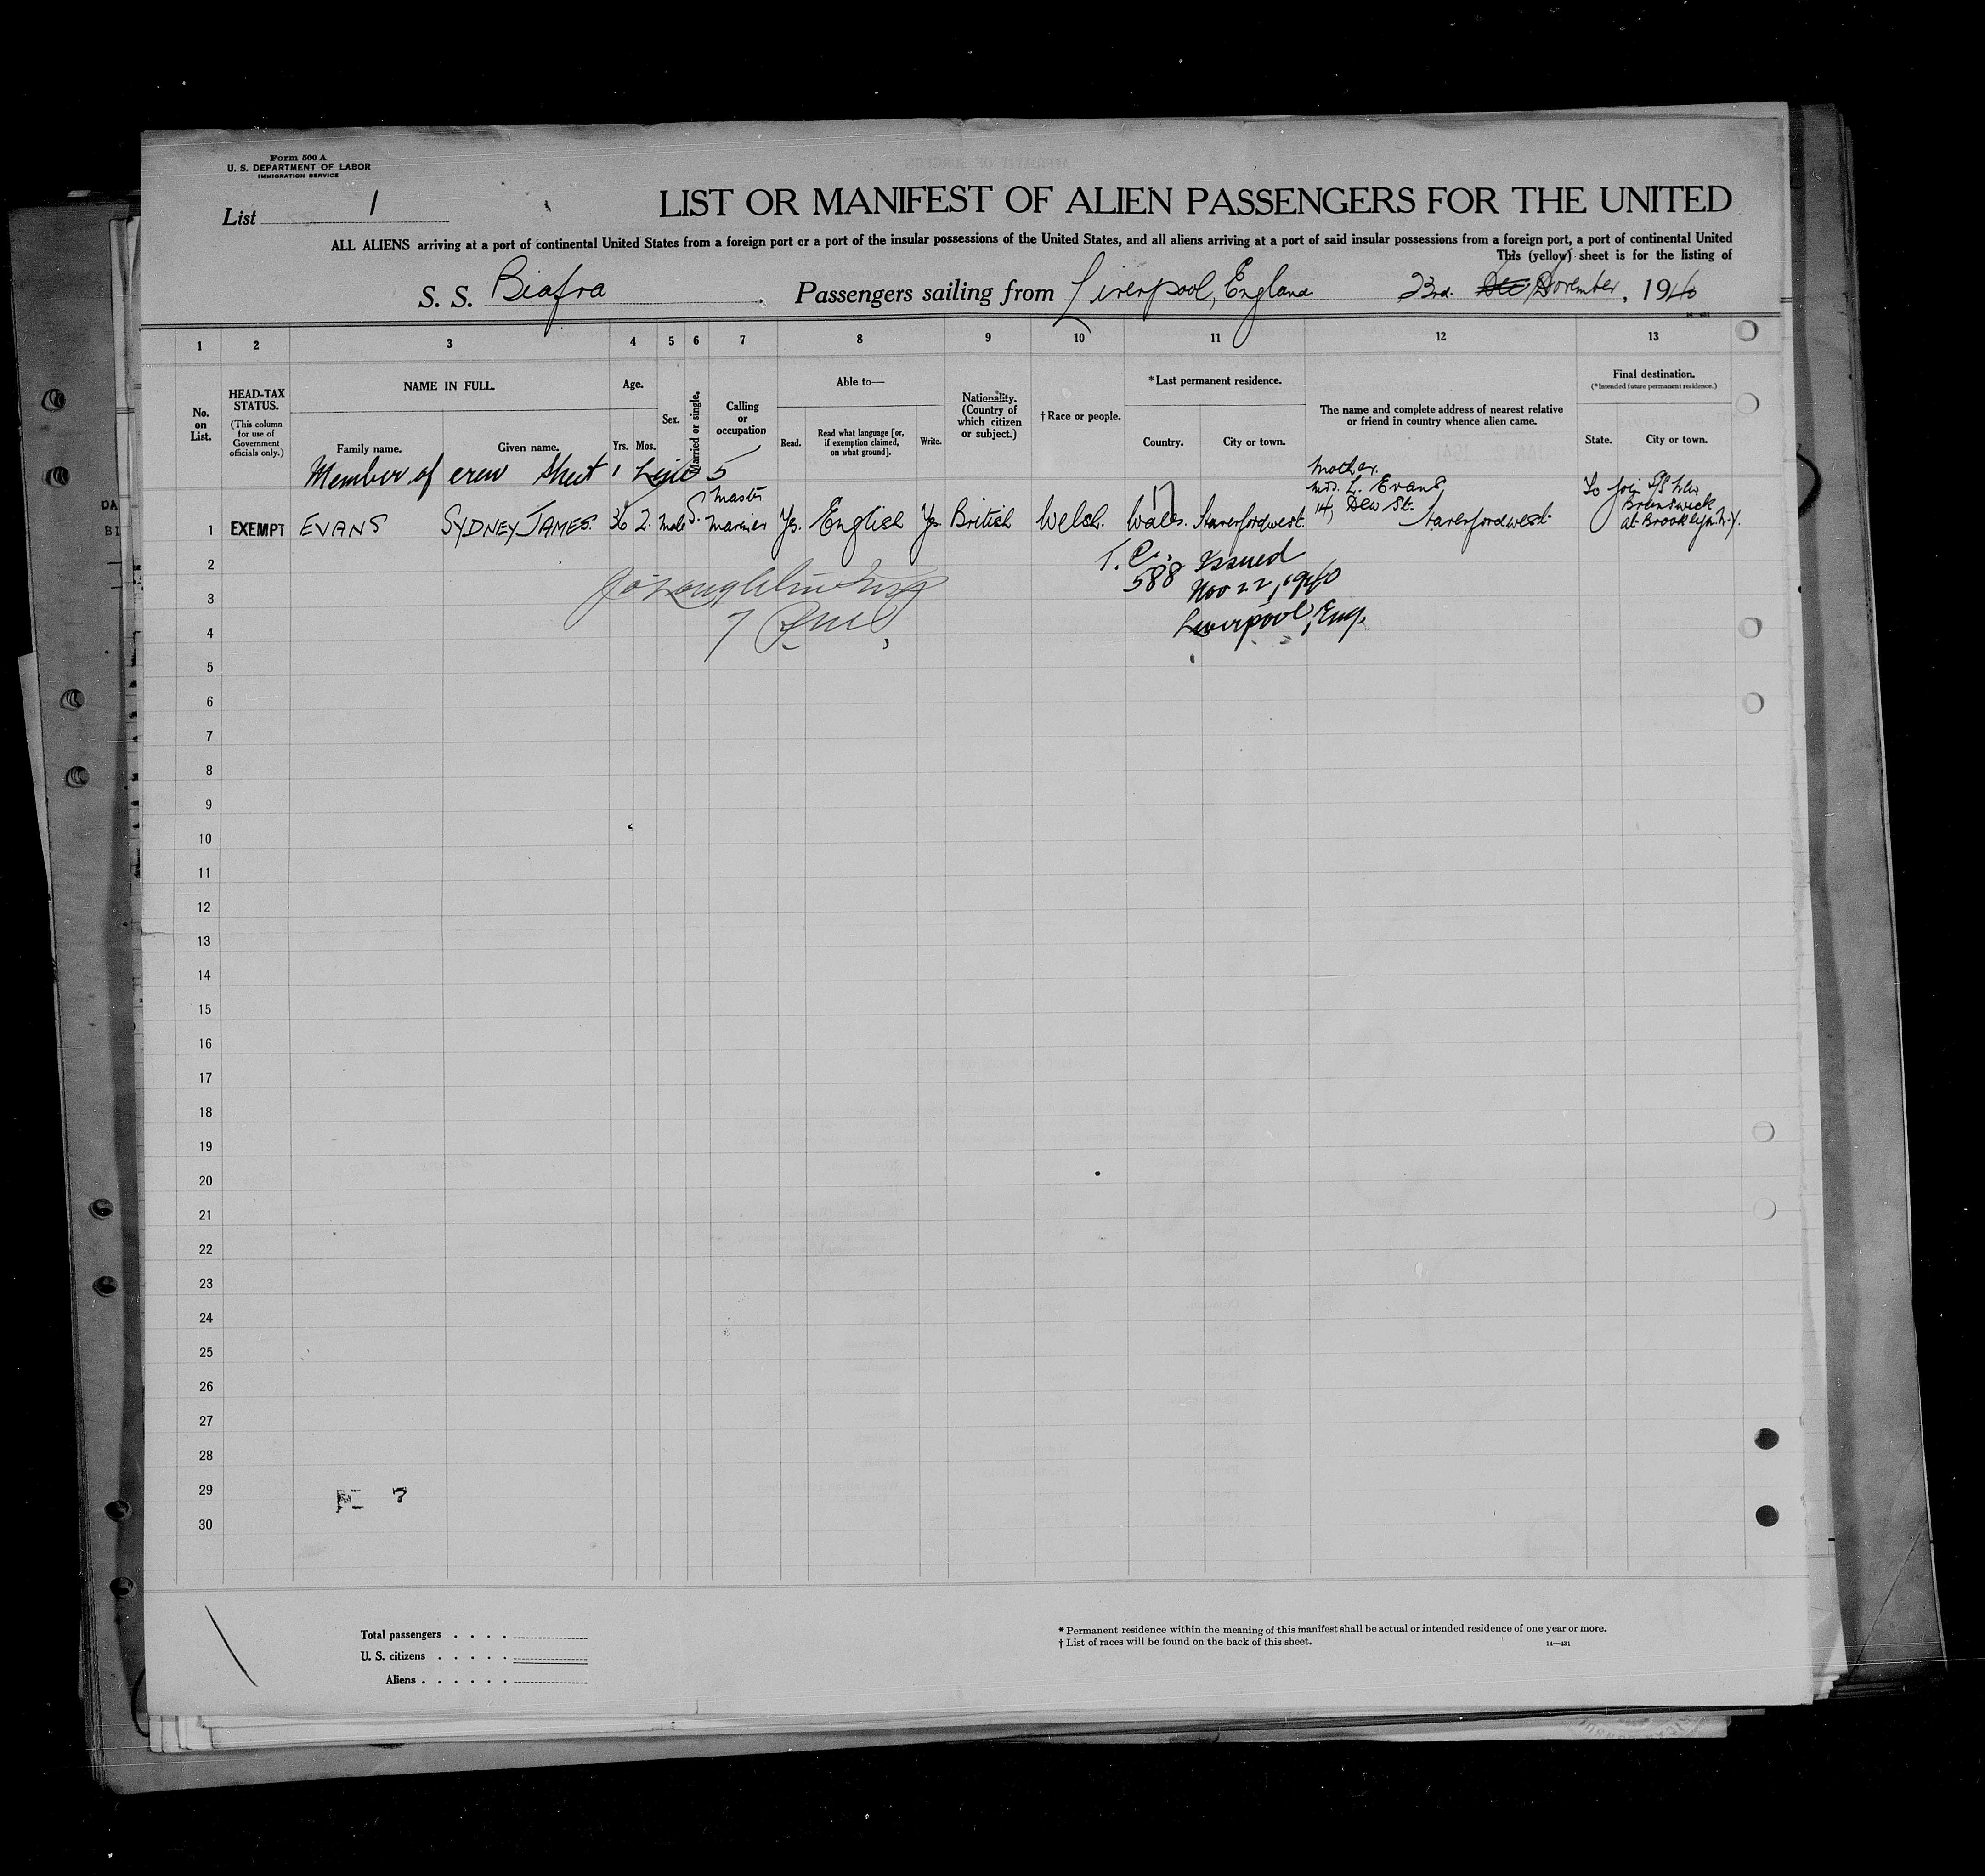 Form 500 A
U. S. DEPARTMENT OF LABOR
IMMIGRATION SERVICE
List 1
LIST OR MANIFEST OF ALIEN PASSENGERS FOR THE UNITED
ALL ALIENS arriving at a port of continental United States from a foreign port or a port of the insular possessions of the United States, and all aliens arriving at a port of said insular possessions from a foreign port, a port of continental United
This (yellow) sheet is for the listing of
S. S. Biafra Passengers sailing from Liverpool, England 23rd. November, 1940
1 2 3 4 5 6 7 8 9 10 11 12 13
No. on List.
HEAD-TAX STATUS.
(This column for use of Government officials only.)
NAME IN FULL.
Family name. Given name.
Age.
Yrs. Mos.
Sex.
Married or single.
Calling or occupation
Able to—
Read. Read what language [or, if exemption claimed, on what ground]. Write.
Nationality. (Country of which citizen or subject.)
† Race or people.
* Last permanent residence.
Country. City or town.
The name and complete address of nearest relative or friend in country whence alien came.
Final destination.
(*Intended future permanent residence.)
State. City or town.
Member of crew Sheet 1 Line 5
1 EXEMPT EVANS SYDNEY JAMES. 36 2. Male S. Master Mariner Yes. English Yes. British Welsh. Wales. Haverfordwest. Mother. Mrs. L. Evans 14, Dew St. Haverfordwest To join S/S Brunswick at Brooklyn N.Y.
2
T. C. 588 Issued
3
Nov 22, 1940
4
Liverpool, Eng.
5
6
7
8
9
10
11
12
13
14
15
16
17
18
19
20
21
22
23
24
25
26
27
28
29
7
30
Total passengers . . . .
U. S. citizens . . . . .
Aliens . . . . . .
* Permanent residence within the meaning of this manifest shall be actual or intended residence of one year or more.
† List of races will be found on the back of this sheet.
14—431